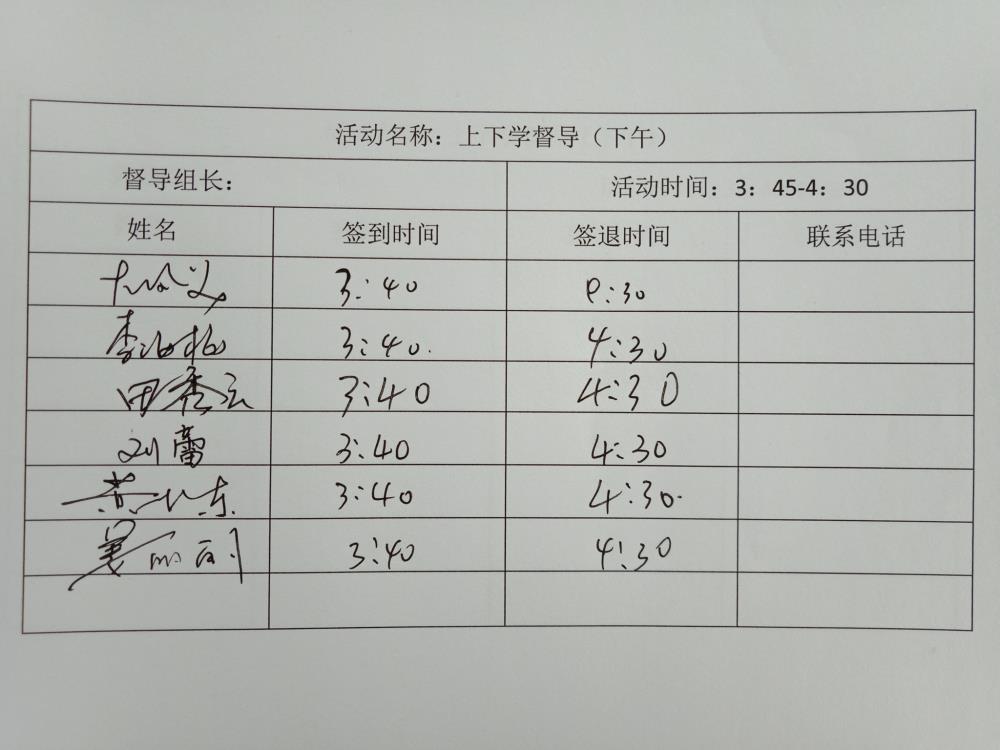 活动名称：上下学督导（下午）
督导组长： 活动时间：3：45-4：30
姓名 签到时间 签退时间 联系电话
3:40 :30
李 3:40. 4:30
田秀云 3:40 4:30
刘蕾 3:40 4:30
东 3:40 4:30.
丽 3:40 4:30